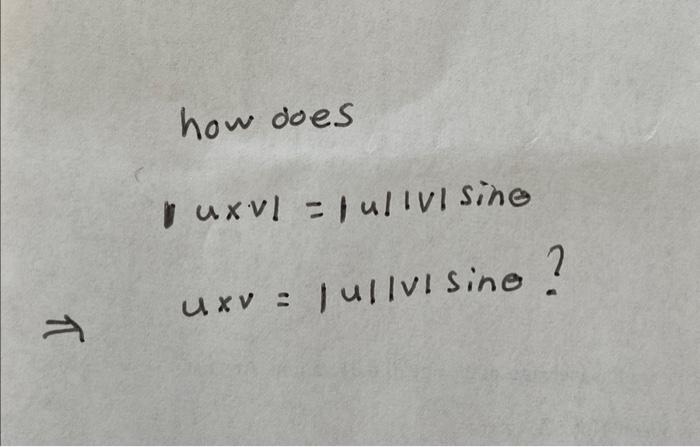 how does
|u×v| = |u||v| sinθ
⇒ u×v = |u||v| sinθ ?